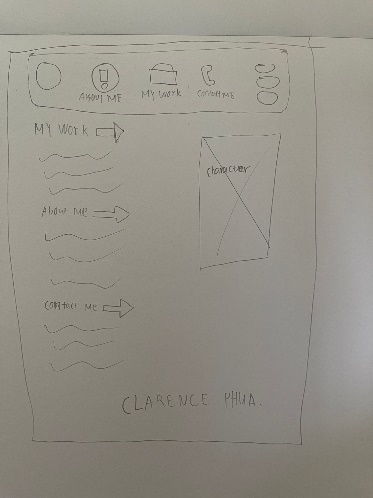 ABOUT ME
MY WORK
CONTACT ME
MY WORK
character
About ME
Contact ME
CLARENCE PHUA.